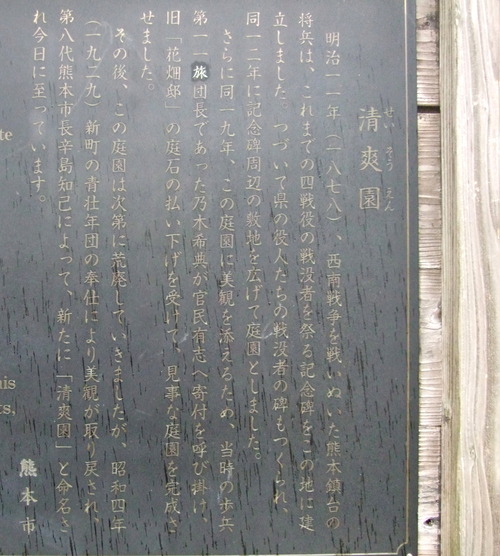 清爽園
せいそうえん
明治一一年（一八七八）、西南戦争を戦いぬいた熊本鎮台の
将兵は、これまでの四戦役の戦没者を祭る記念碑をこの地に建
立しました。つづいて県の役人たちの戦没者の碑もつくられ、
同一二年に記念碑周辺の敷地を広げて庭園としました。
さらに同一九年、この庭園に美観を添えるため、当時の歩兵
第一一旅団長であった乃木希典が官民有志へ寄付を呼び掛け、
旧「花畑邸」の庭石の払い下げを受けて、見事な庭園を完成さ
せました。
その後、この庭園は次第に荒廃していきましたが、昭和四年
（一九二九）新町の青壮年団の奉仕により美観が取り戻され、
第八代熊本市長辛島知己によって、新たに「清爽園」と命名さ
れ今日に至っています。
熊本市
te
his
ts.